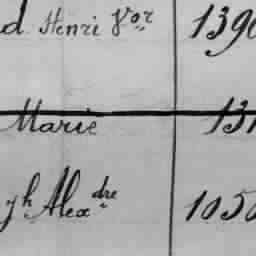 d Henri Vor 1390
Marie 131
yh Alexdre 1050